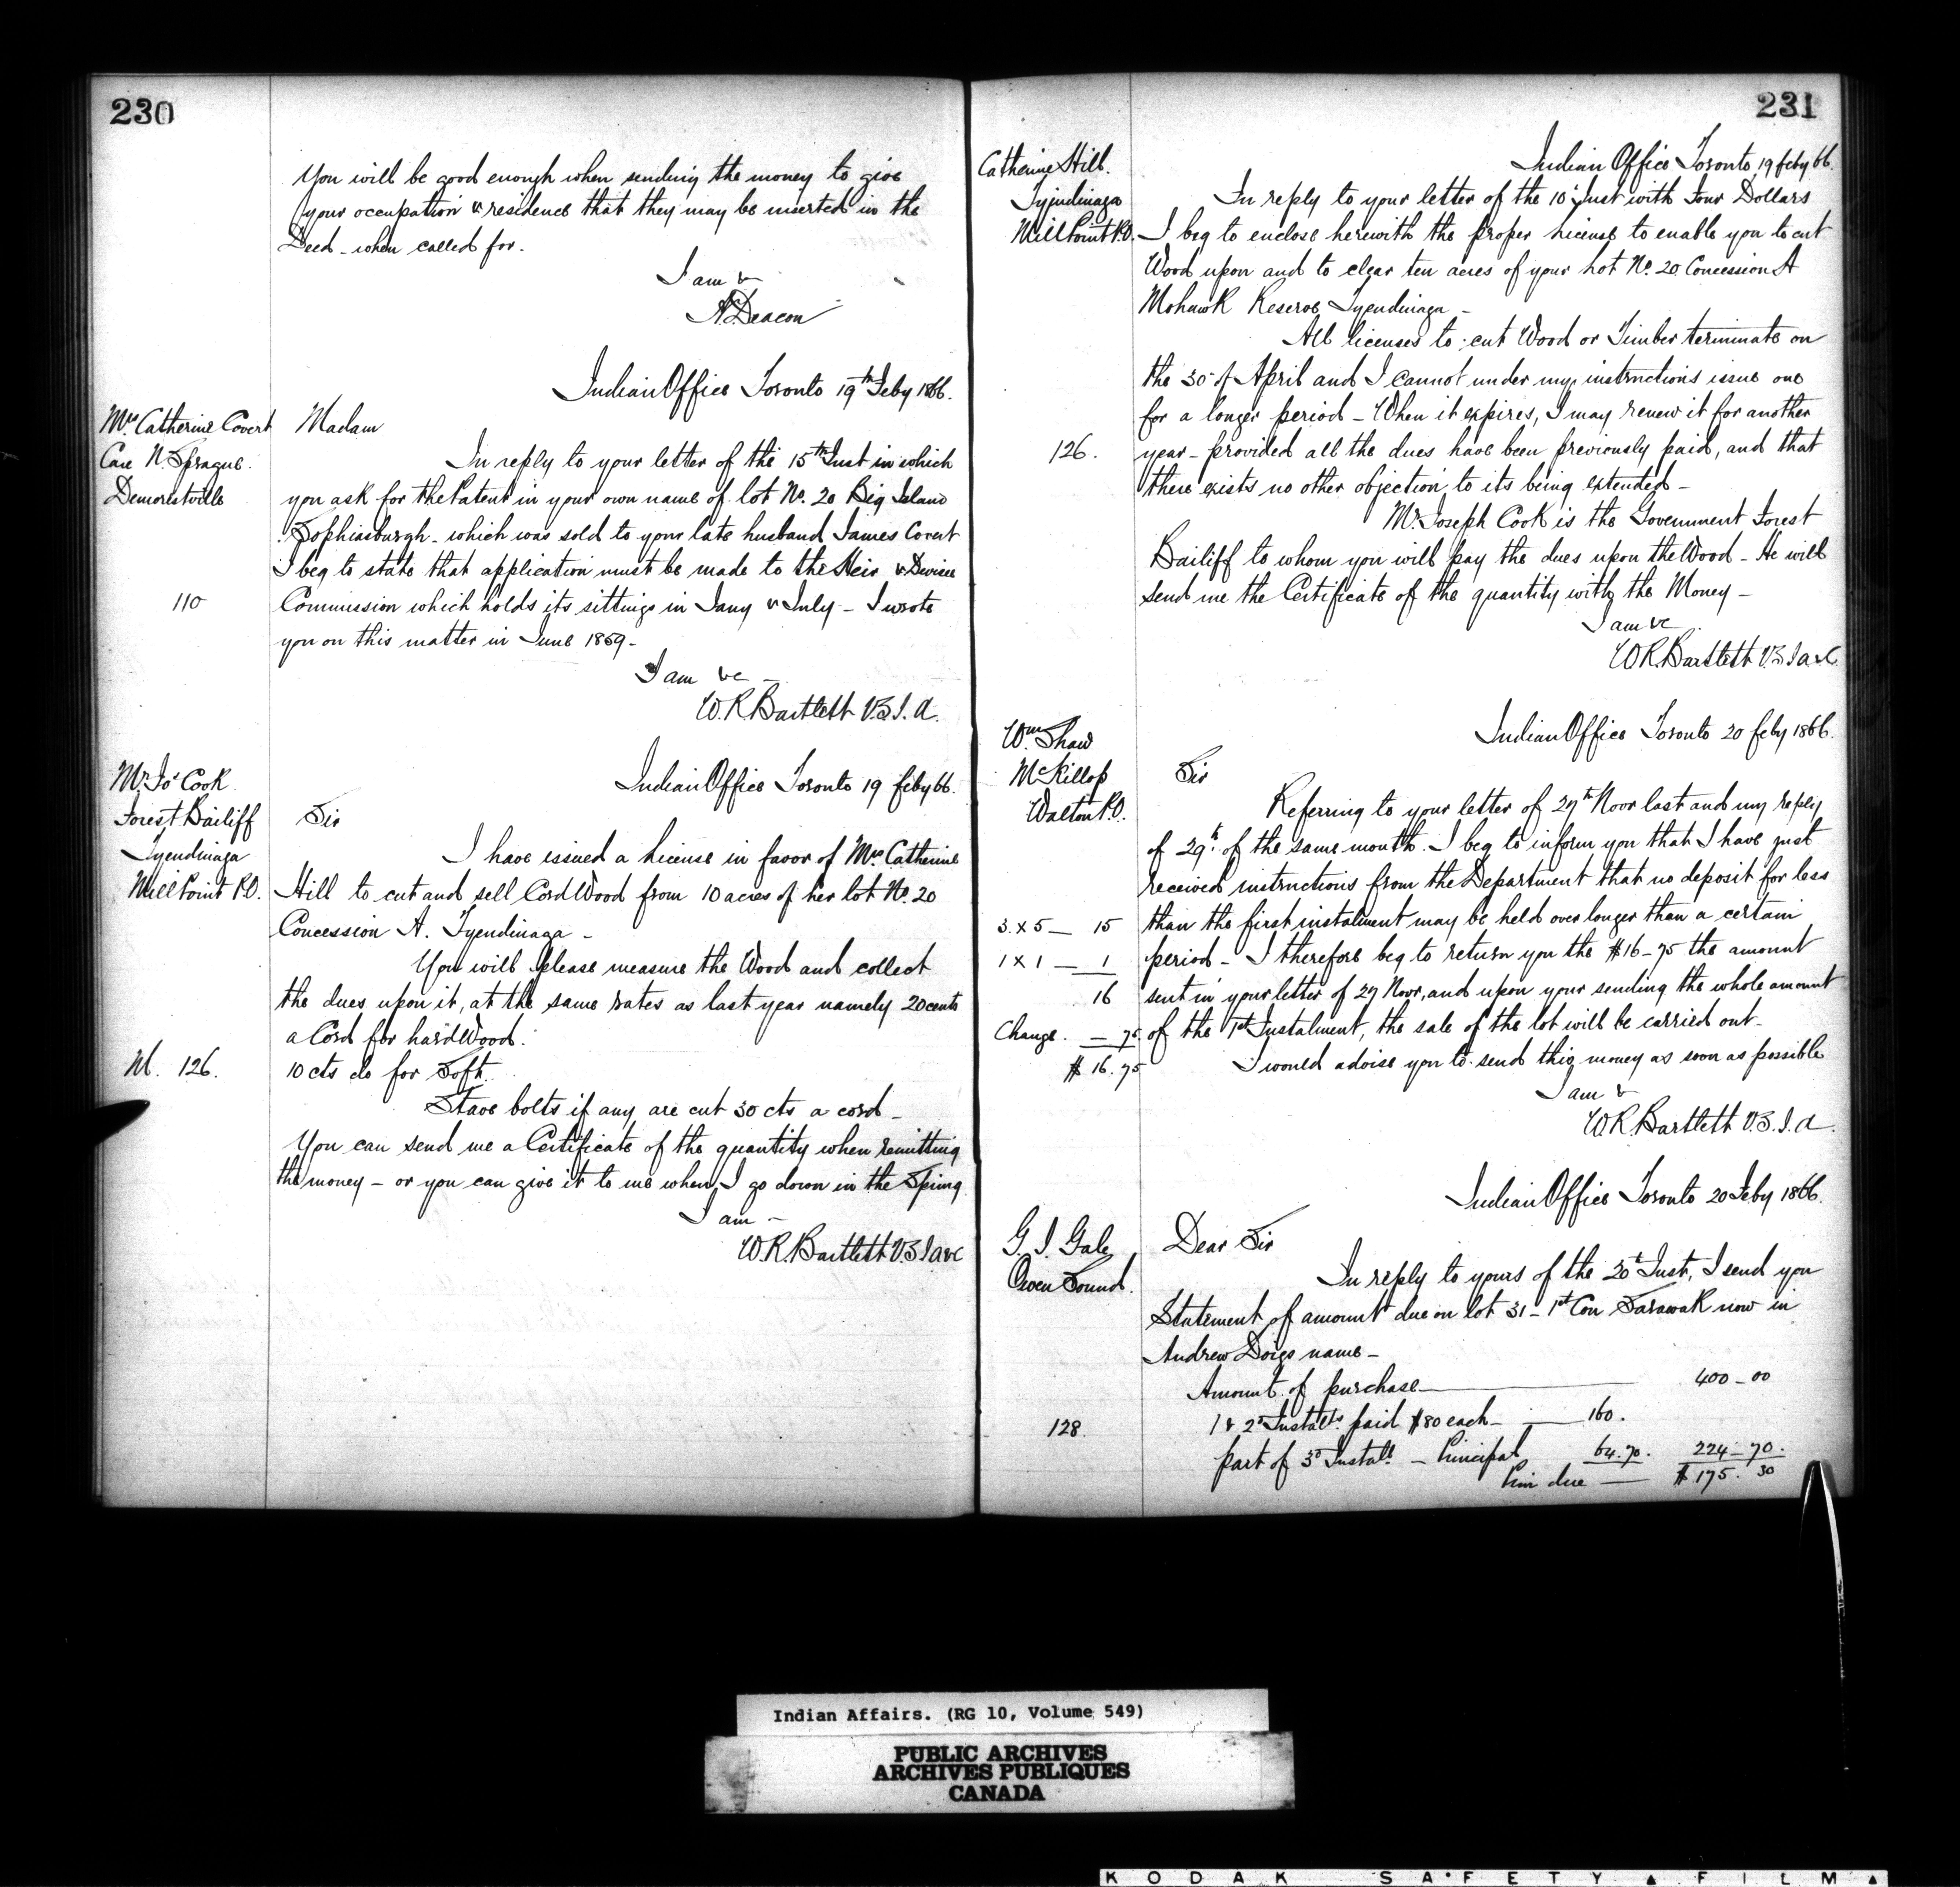 230
You will be good enough when sending the money to give
your occupation & residence that they may be inserted in the
Deed - when called for.
I am &
Deacon
Indian Office Toronto 19th Feby 1866.
Mrs Catherine Covert
Care N. Sprague.
Demorestville
Madam
In reply to your letter of the 15th Inst in which
you ask for the Patent in your own name of lot No. 20 Big Island
Sophiasburgh - which was sold to your late husband James Covert
I beg to state that application must be made to the Heir & Devisee
110
Commission which holds its sittings in Jany & July - I wrote
you on this matter in June 1859 -
I am &c -
W.R. Bartlett V.S.I.A.
Indian Office Toronto 19 Feby 66.
Mr Jos Cook
Forest Bailiff
Tyendinaga
Mill Point P.O.
Sir
I have issued a License in favor of Mrs Catherine
Hill to cut and sell Cord Wood from 10 acres of her lot No. 20
Concession A. Tyendinaga -
You will please measure the Wood and collect
the dues upon it, at the same rates as last year namely 20 cents
a Cord for hard Wood.
M. 126.
10 cts do for Soft.
Stave bolts if any are cut 30 cts a cord -
You can send me a Certificate of the quantity when remitting
the money - or you can give it to me when I go down in the Spring
I am -
W.R. Bartlett V.S.I.A &c
231
Indian Office Toronto 19 Feby 66.
Catherine Hill.
Tyendinaga
Mill Point P.O.
In reply to your letter of the 10 Inst with Four Dollars
I beg to enclose herewith the proper license to enable you to cut
Wood upon and to clear ten acres of your Lot No. 20 Concession A
Mohawk Reserve Tyendinaga -
All licenses to cut Wood or Timber terminate on
the 30 of April and I cannot under my instructions issue one
for a longer period - When it expires, I may renew it for another
126.
year - provided all the dues have been previously paid, and that
there exists no other objection to its being extended -
Mr Joseph Cook is the Government Forest
Bailiff to whom you will pay the dues upon the Wood - He will
send me the Certificate of the quantity with the Money -
I am &c
W.R. Bartlett V.S.I.A &c
Indian Office Toronto 20 Feby 1866.
Wm Shaw
McKillop
Walton P.O.
Sir
Referring to your letter of 27th Novr last and my reply
of 29th of the same month. I beg to inform you that I have just
received instructions from the Department that no deposit for less
3. x 5 — 15
than the first instalment may be held over longer than a certain
1 x 1 — 1
period - I therefore beg to return you the $16-75 the amount
16
sent in your letter of 27 Novr, and upon your sending the whole amount
Change. — 75.
of the 1st Instalment, the sale of the lot will be carried out -
$ 16.75
I would advise you to send this money as soon as possible
I am &
W.R. Bartlett V.S.I.A.
Indian Office Toronto 20 Feby 1866.
Owen Sound.
Dear Sir
In reply to yours of the Inst, I send you
Statement of amount due on lot 31 - 1st Con Sarawak now in
Andrew Doigs name -
Amount of purchase — 400-00
128.
1 & 2d Instalts. paid $80 each - — 160.
part of 3d Instalt - Principal 64.70. 224-70.
Prin due — $ 175.30
Indian Affairs. (RG 10, Volume 549)
PUBLIC ARCHIVES
ARCHIVES PUBLIQUES
CANADA
KODAK SAFETY FILM